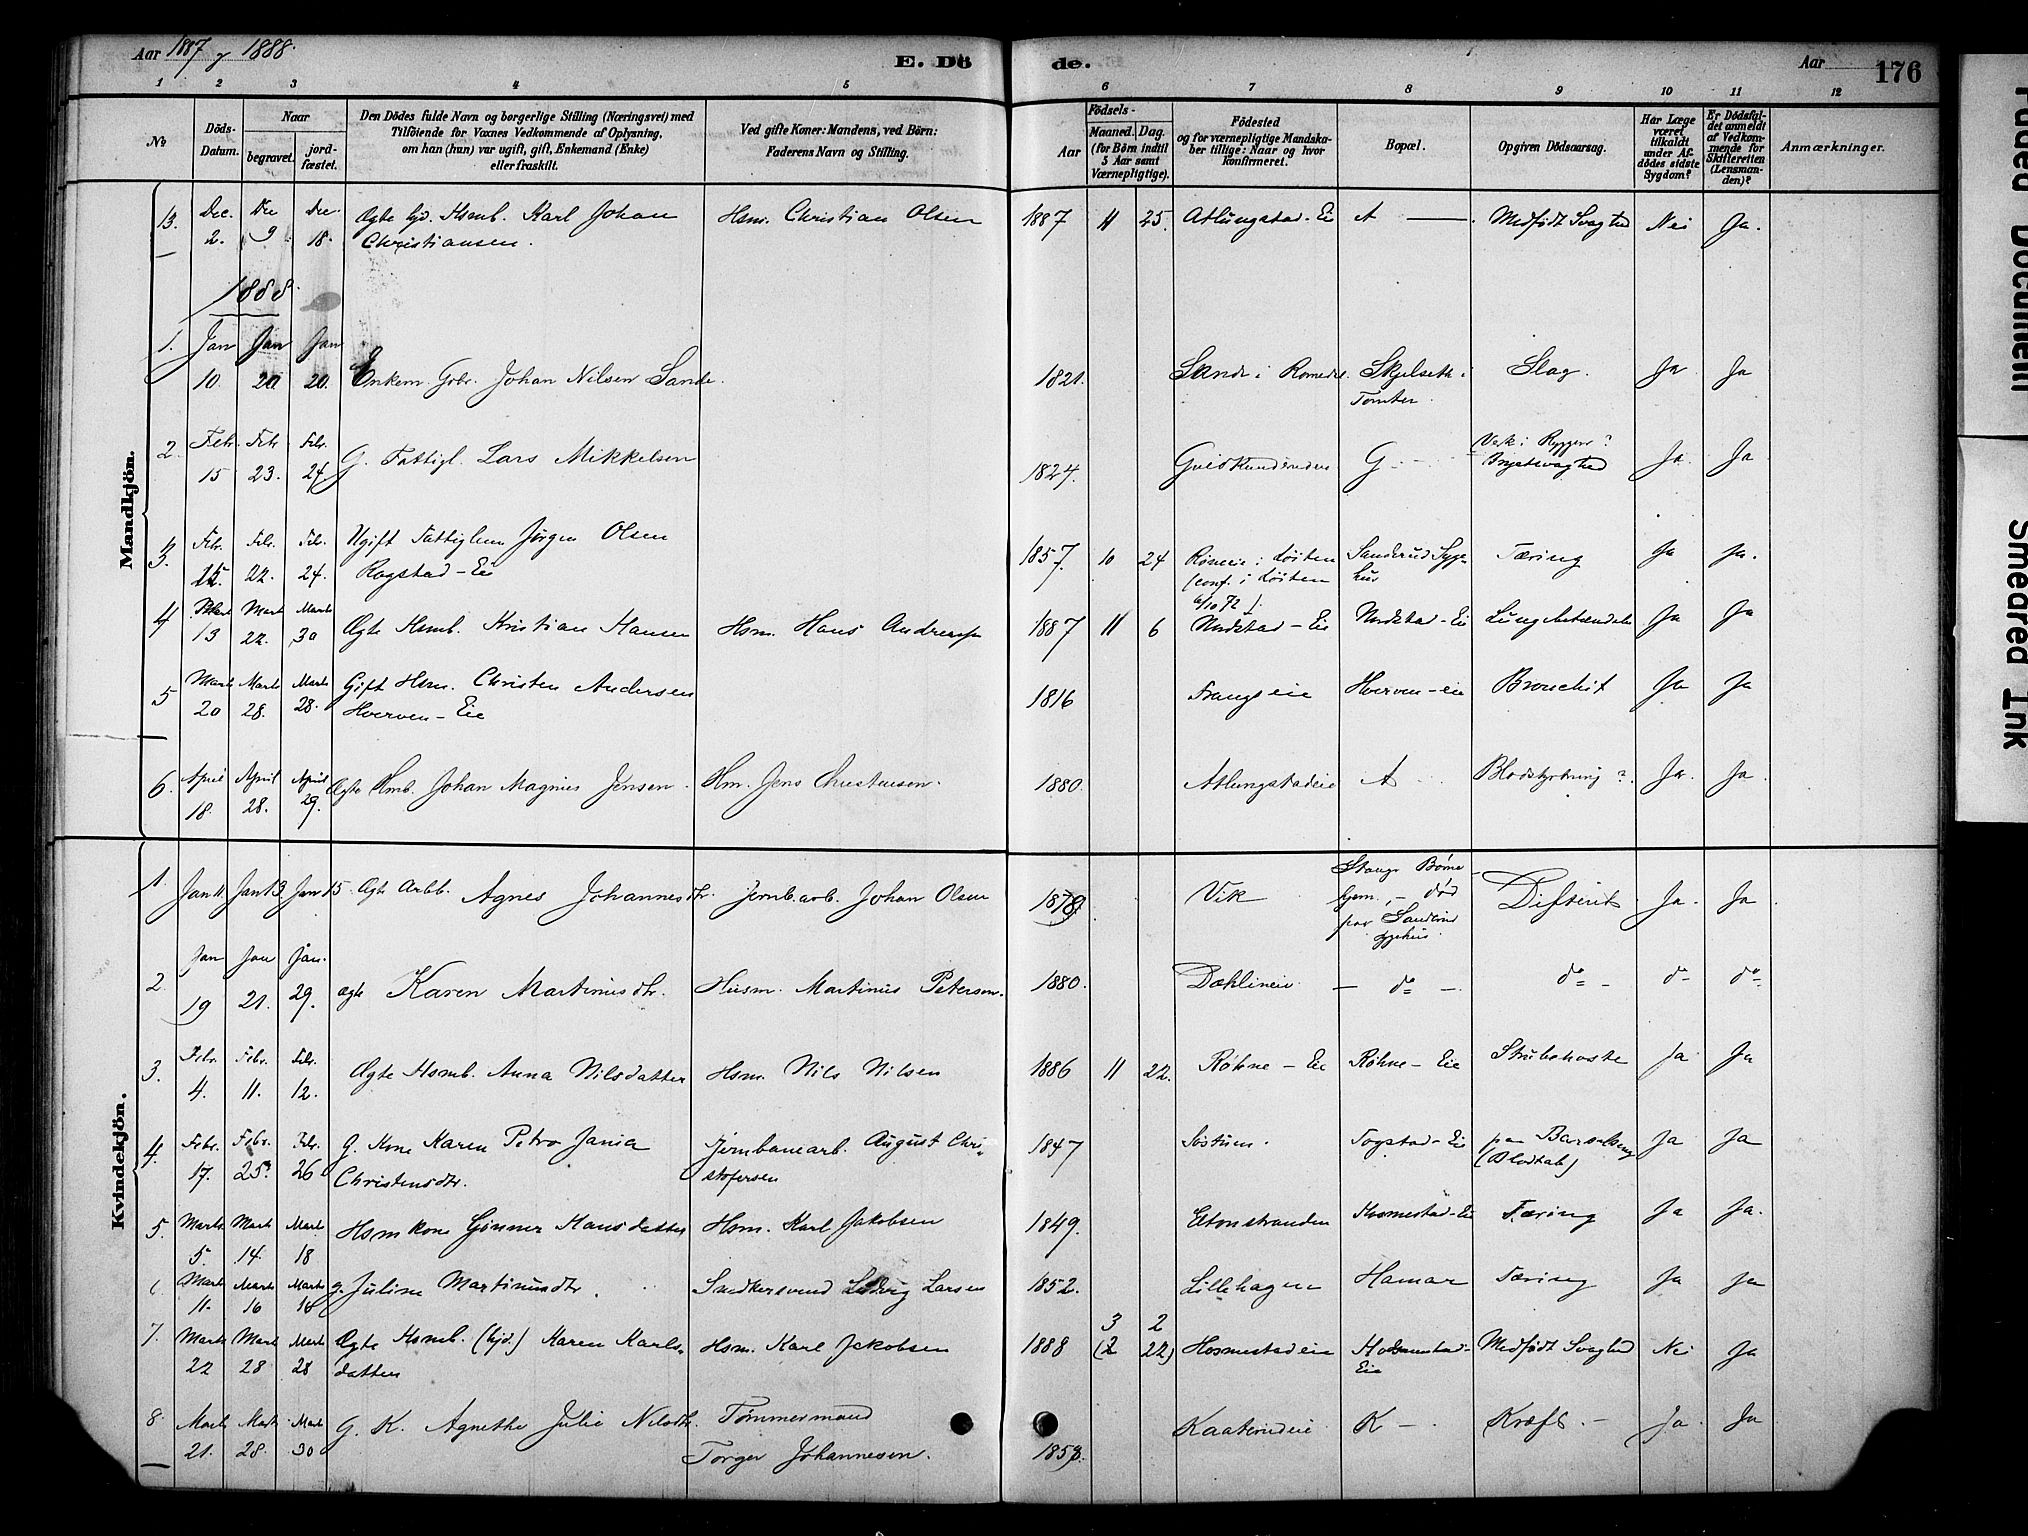 Aar 1887 og 1888.
E. Dö
de.
Aar
176
1 2 3 4 5 6 7 8 9 10 11 12
No
Döds-Datum.
Naar
begravet.
jord-fæstet.
Den Dödes fulde Navn og borgerlige Stilling (Næringsvei) med
Tilföiende for Voxnes Vedkommende af Oplysning,
om han (hun) var ugift, gift, Enkemand (Enke)
eller fraskilt.
Ved gifte Koner: Mandens, ved Börn:
Faderens Navn og Stilling.
Födsels-
Aar
Maaned.
Dag.
(for Börn indtil
5 Aar samt
Værnepligtige).
Födested
og for værnepligtige Mandska-
ber tillige: Naar og hvor
konfirmeret.
Bopæl.
Opgiven Dödsaarsag.
Har Læge
været
tilkaldt
under Af-
dödes sidste
Sygdom?
Er Dödsfal-
det anmeldt
af Vedkom-
mende for
Skifteretten
(Lensman-
den)?
Anmærkninger.
Mandkjön.
13. Dec. 2. Dec 9. Dec. 18. Ægte hjd. Hsmb. Karl Johan Hsm. Christian Olsen 1887 11 25. Atlungstad-Eie A — Medfødt Svaghed Nei Ja.
Christiansen.
1888.
1. Jan 10. Jan 20 Jan 20. Enkem. Gbr. Johan Nilsen Sande. 1821. Sande i Romedal. Skjelseth i Slag. Ja Ja
Tomter.
2. Febr. 15 Febr 23. Febr. 24. G. Fattigl. Lars Mikkelsen 1824. G — Værk i Ryggen? Brystsvaghed Ja Ja
3. Febr. 15. Febr. 22. Febr. 24. Ugift Fattiglem Jørgen Olsen 1857. 10 24 i Løiten Sanderud Syge- Tæring Ja Ja.
Rogstad-Eie (conf. i Løiten hus
6/10 72).
4 Marts 13 Marts 22. Marts 30 Ægte Hsmb. Kristian Hansen Hsm. Hans Andreasen 1887 11 6 Nordstad-Eie Nordstad-Eie Lungebetændelse Ja Ja
5 Marts 20 Marts 28. Marts 28. Gift Hsm. Christen Andersen 1816 Frangseie Hverven-eie Bronchit Ja Ja
Hverven-Eie
6. April 18. April 28. April 29. Ægte Hmb. Johan Magnus Jensen. Hm. Jens Christensen. 1880. Atlungstadeie A — Blodstyrtning? Ja. Ja.
Kvindekjön.
1. Jan 11. Jan 13 Jan 15. Ægte Arbb. Agnes Johannesdtr. Jernb.arb. Johan Olsen 1879. Vik Stange Børne- Difterit. Ja. Ja
hjem, – død
paa Sanderud
Sygehus.
2. Jan 19 Jan 21. Jan. 29. ægte Karen Martinusdtr. Husm. Martinus Petersen. 1880. Dæhlineie. — do — do — do do
3. Febr. 4. Febr. 11. Febr. 12. Ægte Hsmb. Anna Nilsdatter Hsm. Nils Nilsen 1886 11 22. Røhne – Eie Røhne – Eie Strubehoste Ja Ja
4. Febr. 17. Febr. 25. Febr. 26 G. Kone Karen Petra Jania Jernbanearb. August Chri- 1847 Sostum. Fogstad-Eie paa Barselseng Ja Ja
Christensdtr. stofersen (Blodtab)
5. Marts 5. Marts 14. Marts 18 Hsmkone Gunner Hansdatter Hsm. Karl Jakobsen 1849. Etonstranden Hosmestad-Eie Tæring Ja Ja.
6 Marts 11. Marts 16 Marts 16 g. Juline Martinusdtr. Snedkersvend Ludvig Larsen 1852. Lillehagen Hamar Tæring Ja Ja
7. Marts 22 Marts 28 Marts 28 Ægte Hsmb. (hjd.) Karen Karls- Hsm. Karl Jakobsen 1888 3 2 (2 22) Hosmestadeie Hosmestad- Medfødt Svaghed Nei Ja
datter Eie
8. Marts 21. Marts 28. Marts 30 G. K. Agnethe Julie Nilsdtr. Tømmermand 1853. K — Kræft. – Ja. Ja
Torger Johannesen.
Faded Document
Smeared Ink